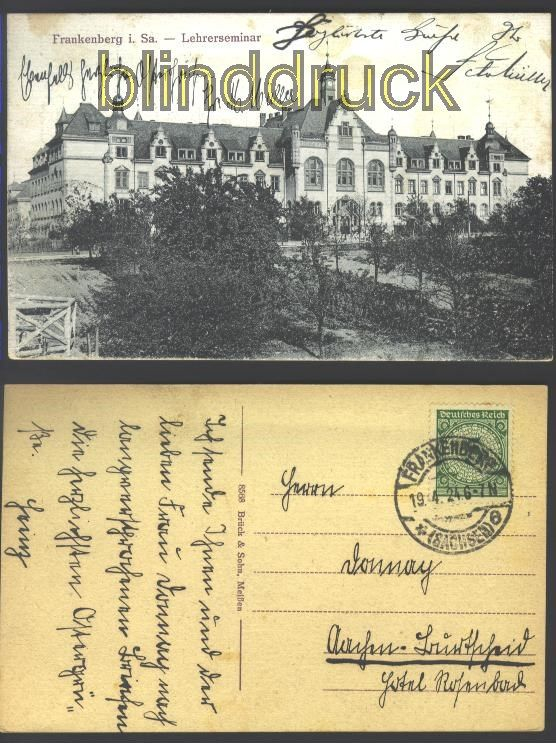 Frankenberg i. Sa. — Lehrerseminar
Herzlichste Grüße Ihr
Ebenfalls herzliche
blinddruck
Ich sende Ihnen und der
lieben Frau Donnay nach
langversprochenen Briefen
die herzlichsten Ostergrü-
ße.
Heinz
8568 Brück & Sohn, Meißen
Deutsches Reich
FRANKENBERG
19.4.24.6-7N
* (SACHSEN) 6
Herrn
Donnay
Aachen-Burtscheid
Hotel Rosenbad